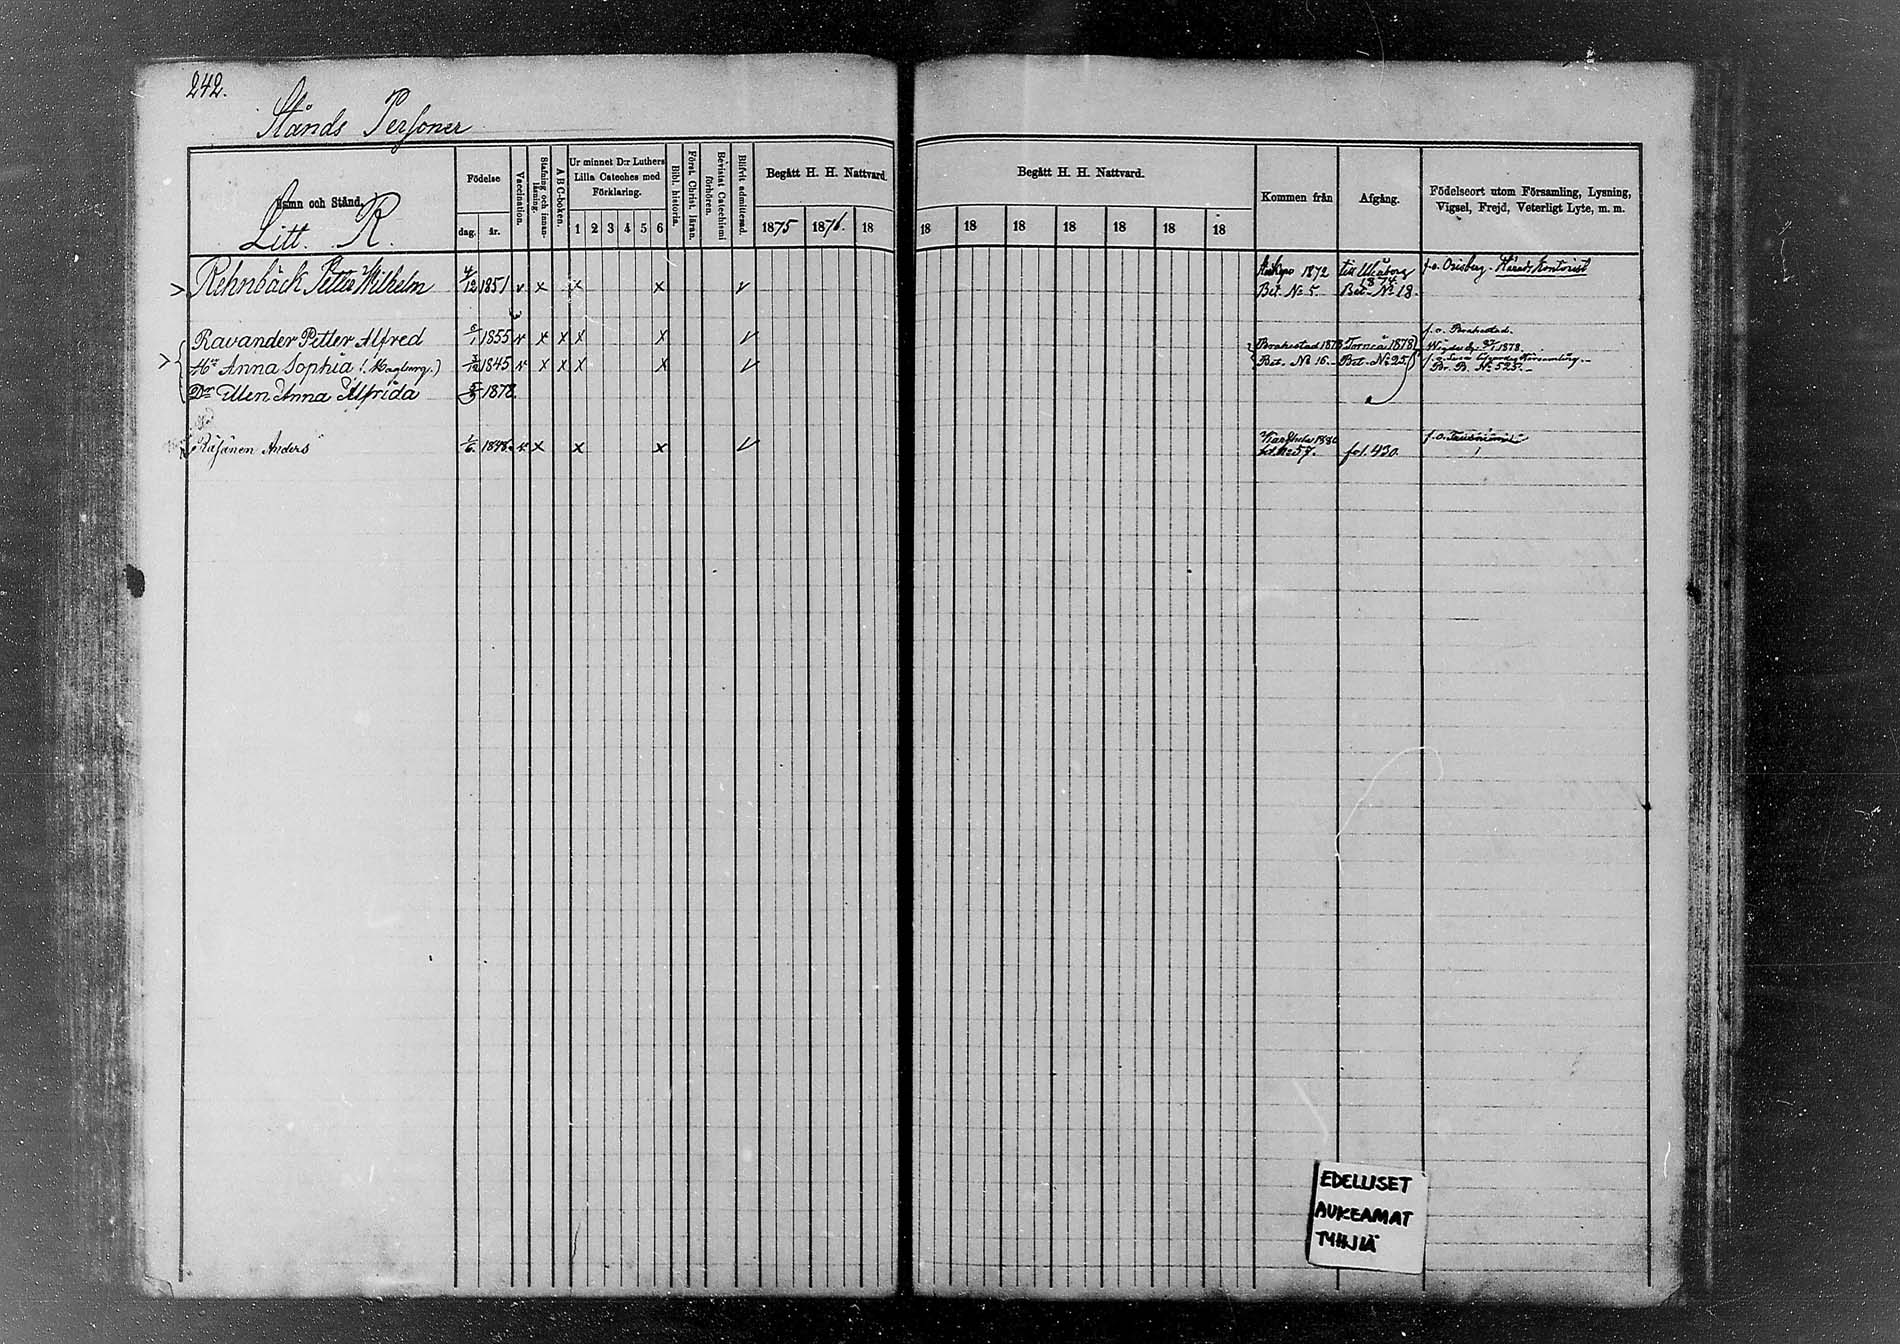 242.
Stånds Personer
Namn och Stånd.
Litt. R.
Födelse
dag. år.
Vaccination.
Stafning och innanläsning.
A B C-boken.
Ur minnet D:r Luthers
Lilla Cateches med
Förklaring.
1 2 3 4 5 6
Bibl. historia.
Först. Christ. läran.
Bevistat Catechismi förhören.
Blifvit admitterad.
Begått H. H. Nattvard.
1875 1876. 18
Begått H. H. Nattvard.
18 18 18 18 18 18 18
Kommen från
Afgång.
Födelseort utom Församling, Lysning,
Vigsel, Frejd, Veterligt Lyte, m. m.
Rehnbäck Petter Wilhelm 4/12 1851 v x x x v 1872 till Uleåborg 1874 f. o. Härads Kontorist
Bet. No 5. Bet. No 18.
Ravander Petter Alfred 1855 v x x x x v Brahestad 1878 Torneå 1878 f. o. Brahestad.
Hu Anna Sophia 1845 v x x x x v Bet. No 16. Bet. No 25 1878.
Br. B. No 525.
Dr Ellen Anna Alfrida 1878.
Räisänen Anders 1/6 1848. v x x x v 1880 f. o.
fol. No 57. fol. 430.
EDELLISET
AUKEAMAT
TYHJIÄ